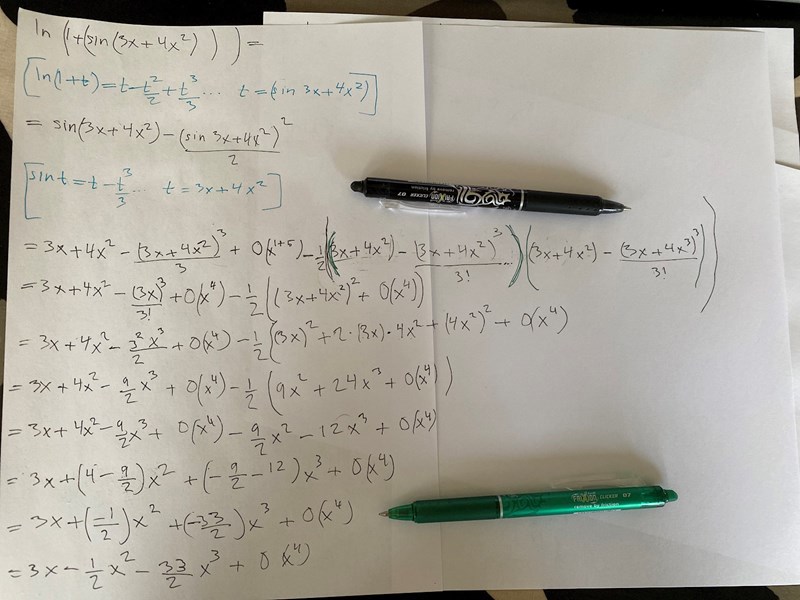 ln (1+(sin(3x+4x²))) =
[ln(1+t)=t-t²/2+t³/3... t=(sin 3x+4x²)]
= sin(3x+4x²)-(sin 3x+4x²)²/2
[sin t=t-t³/3... t=3x+4x²]
= 3x+4x²-(3x+4x²)³/3 + O(x¹⁺⁵)-1/2((3x+4x²)-(3x+4x²)³/3!...)((3x+4x²)-(3x+4x³)³/3!))
= 3x+4x²-(3x)³/3!+O(x⁴)-1/2((3x+4x²)²+O(x⁴))
= 3x+4x²-3²x³/2+O(x⁴)-1/2((3x)²+2·(3x)·4x²+(4x²)²+O(x⁴)
= 3x+4x²-9/2x³+O(x⁴)-1/2(9x²+24x³+O(x⁴))
= 3x+4x²-9/2x³+O(x⁴)-9/2x²-12x³+O(x⁴)
= 3x+(4-9/2)x²+(-9/2-12)x³+O(x⁴)
= 3x+(-1/2)x²+(-33/2)x³+O(x⁴)
= 3x-1/2x²-33/2x³+O(x⁴)
FriXion CLICKER 07
remove by friction
FriXion CLICKER 0.7
remove by friction